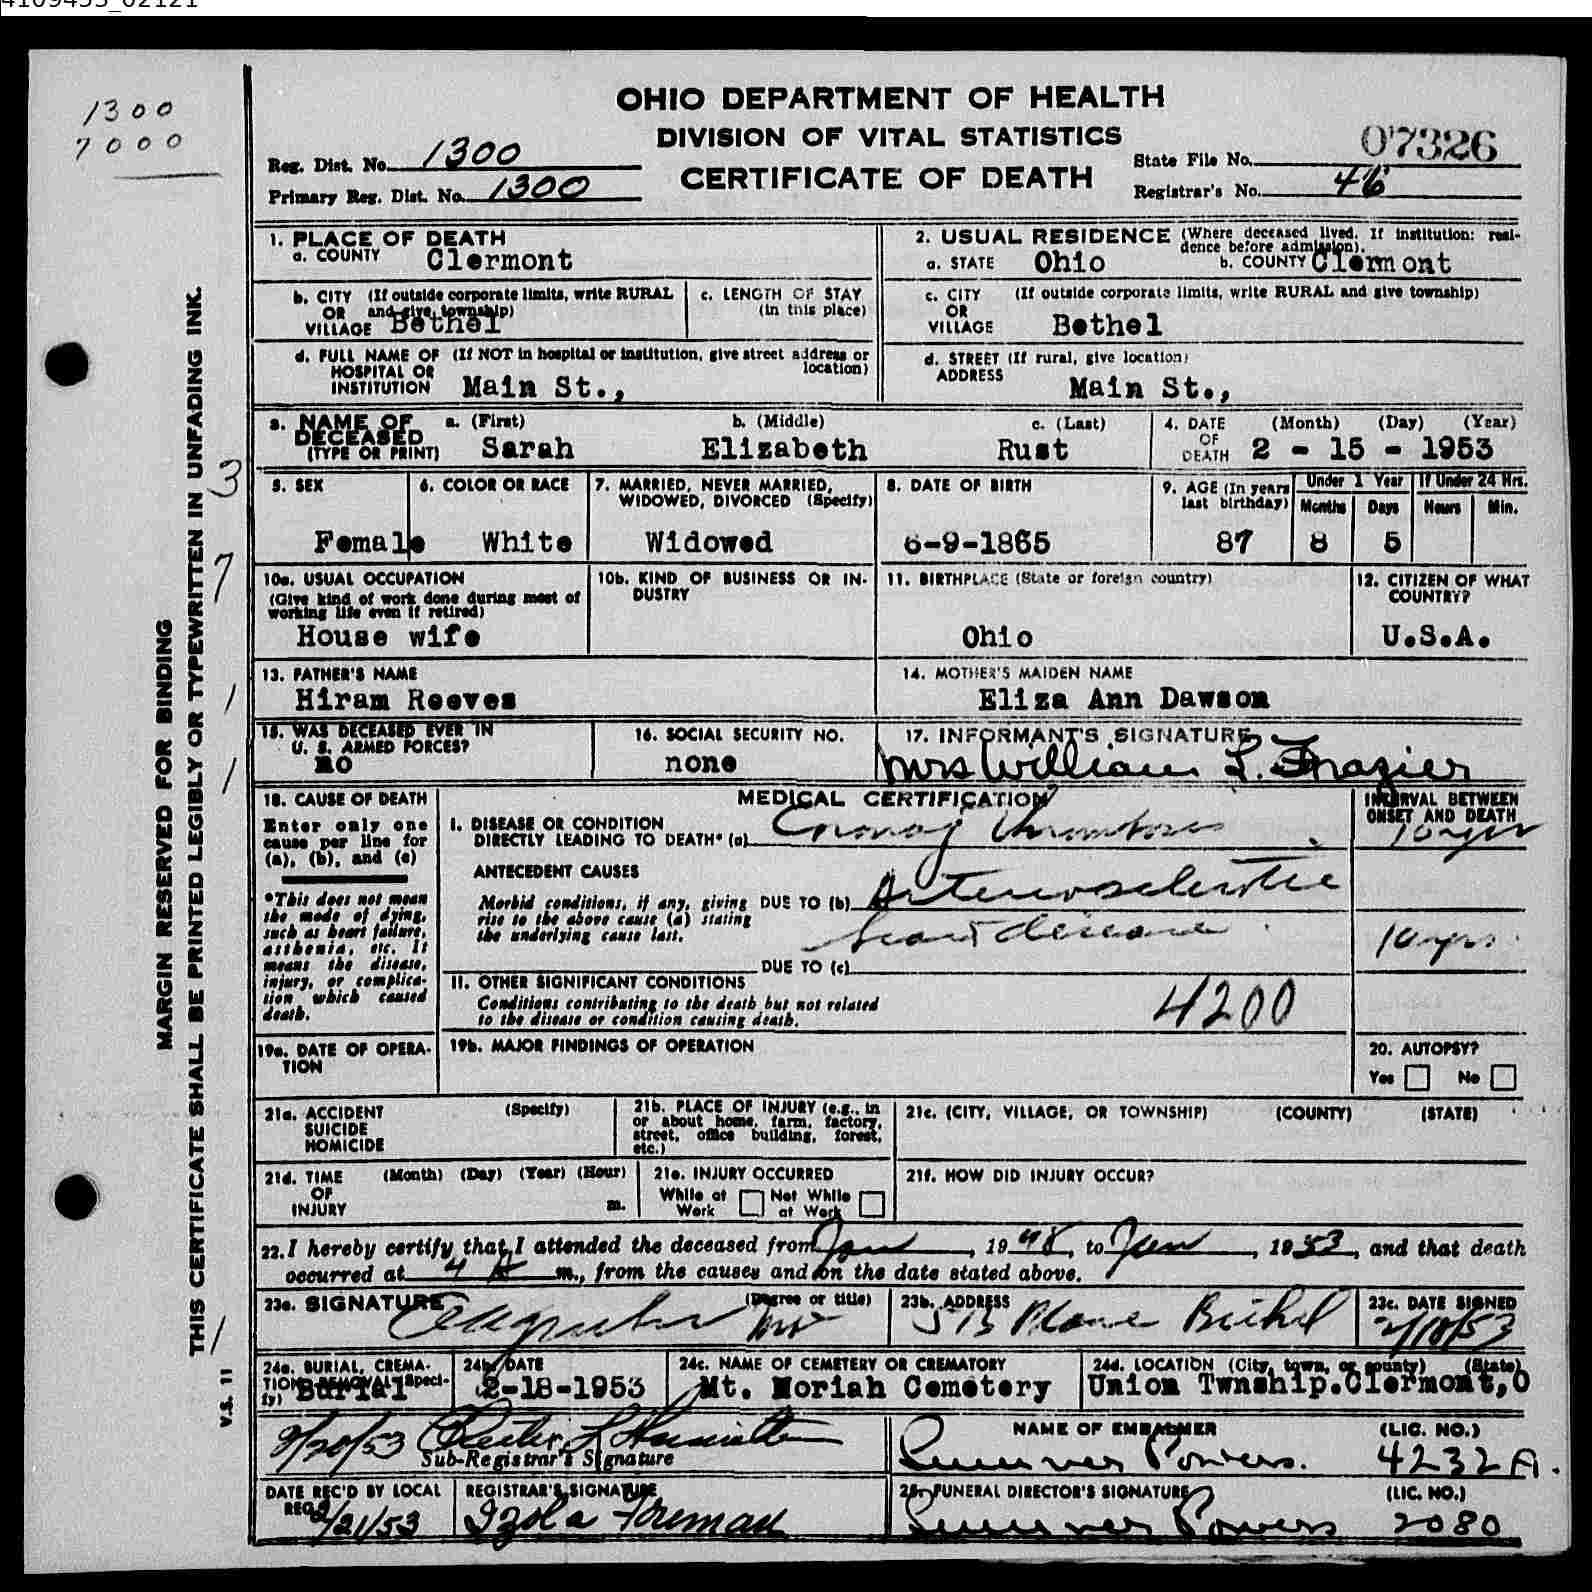 4109453_02121
1300
7000
OHIO DEPARTMENT OF HEALTH
DIVISION OF VITAL STATISTICS
CERTIFICATE OF DEATH
Reg. Dist. No. 1300
Primary Reg. Dist. No. 1300
State File No. 07326
Registrar's No. 46
MARGIN RESERVED FOR BINDING
THIS CERTIFICATE SHALL BE PRINTED LEGIBLY OR TYPEWRITTEN IN UNFADING INK.
V.S. 11
3
7
1
1
1
1. PLACE OF DEATH
a. COUNTY Clermont
2. USUAL RESIDENCE (Where deceased lived. If institution: residence before admission).
a. STATE Ohio b. COUNTY Clermont
b. CITY (If outside corporate limits, write RURAL
OR and give township)
VILLAGE Bethel
c. LENGTH OF STAY
(in this place)
c. CITY (If outside corporate limits, write RURAL and give township)
OR
VILLAGE Bethel
d. FULL NAME OF (If NOT in hospital or institution, give street address or
HOSPITAL OR location)
INSTITUTION Main St.,
d. STREET (If rural, give location)
ADDRESS Main St.,
3. NAME OF a. (First) b. (Middle) c. (Last)
DECEASED
(TYPE OR PRINT) Sarah Elizabeth Rust
4. DATE (Month) (Day) (Year)
OF
DEATH 2 - 15 - 1953
5. SEX
Female
6. COLOR OR RACE
White
7. MARRIED, NEVER MARRIED,
WIDOWED, DIVORCED (Specify)
Widowed
8. DATE OF BIRTH
6-9-1865
9. AGE (In years
last birthday)
87
Under 1 Year
Months Days
8 5
If Under 24 Hrs.
Hours Min.
10a. USUAL OCCUPATION
(Give kind of work done during most of
working life even if retired)
House wife
10b. KIND OF BUSINESS OR IN-
DUSTRY
11. BIRTHPLACE (State or foreign country)
Ohio
12. CITIZEN OF WHAT
COUNTRY?
U.S.A.
13. FATHER'S NAME
Hiram Reeves
14. MOTHER'S MAIDEN NAME
Eliza Ann Dawson
15. WAS DECEASED EVER IN
U. S. ARMED FORCES?
no
16. SOCIAL SECURITY NO.
none
17. INFORMANT'S SIGNATURE
Mrs William L. Frazier
18. CAUSE OF DEATH
Enter only one
cause per line for
(a), (b), and (c)
*This does not mean
the mode of dying,
such as heart failure,
asthenia, etc. It
means the disease,
injury, or complica-
tion which caused
death.
MEDICAL CERTIFICATION
INTERVAL BETWEEN
ONSET AND DEATH
I. DISEASE OR CONDITION
DIRECTLY LEADING TO DEATH* (a) Coronary thrombosis
ANTECEDENT CAUSES
Morbid conditions, if any, giving
rise to the above cause (a) stating
the underlying cause last.
DUE TO (b) Arteriosclerotic
heart disease 10 yrs.
DUE TO (c)
II. OTHER SIGNIFICANT CONDITIONS
Conditions contributing to the death but not related
to the disease or condition causing death.
4200
19a. DATE OF OPERA-
TION
19b. MAJOR FINDINGS OF OPERATION
20. AUTOPSY?
Yes No
21a. ACCIDENT (Specify)
SUICIDE
HOMICIDE
21b. PLACE OF INJURY (e.g., in
or about home, farm, factory,
street, office building, forest,
etc.)
21c. (CITY, VILLAGE, OR TOWNSHIP) (COUNTY) (STATE)
21d. TIME (Month) (Day) (Year) (Hour)
OF
INJURY m.
21e. INJURY OCCURRED
While at Not While
Work at Work
21f. HOW DID INJURY OCCUR?
22. I hereby certify that I attended the deceased from Jan, 1948, to Jan, 1953, and that death
occurred at 4 A m., from the causes and on the date stated above.
23a. SIGNATURE (Degree or title)
MD
23b. ADDRESS
Bethel
23c. DATE SIGNED
2/18/53
24a. BURIAL, CREMA-
TION, REMOVAL (Speci-
fy) Burial
24b. DATE
2-18-1953
24c. NAME OF CEMETERY OR CREMATORY
Mt. Moriah Cemetery
24d. LOCATION (City, town, or county) (State)
Union Twnship.Clermont,O
2/20/53
Sub-Registrar's Signature
NAME OF EMBALMER (LIC. NO.)
Sumner Powers. 4232A.
DATE REC'D BY LOCAL
REG. 2/21/53
REGISTRAR'S SIGNATURE
Izola Foreman
25. FUNERAL DIRECTOR'S SIGNATURE (LIC. NO.)
Sumner Powers 2080